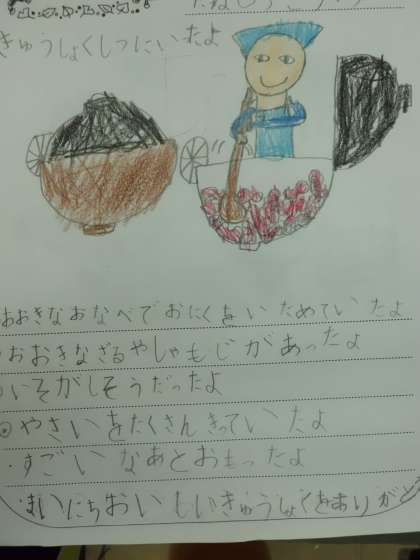 きゅうしょくしつにいたよ
おおきなおなべでおにくをいためていたよ
おおきなざるやしゃもじがあったよ
いそがしそうだったよ
やさいをたくさんきっていたよ
・すごいなあとおもったよ
まいにちおいしいきゅうしょくをありがとう